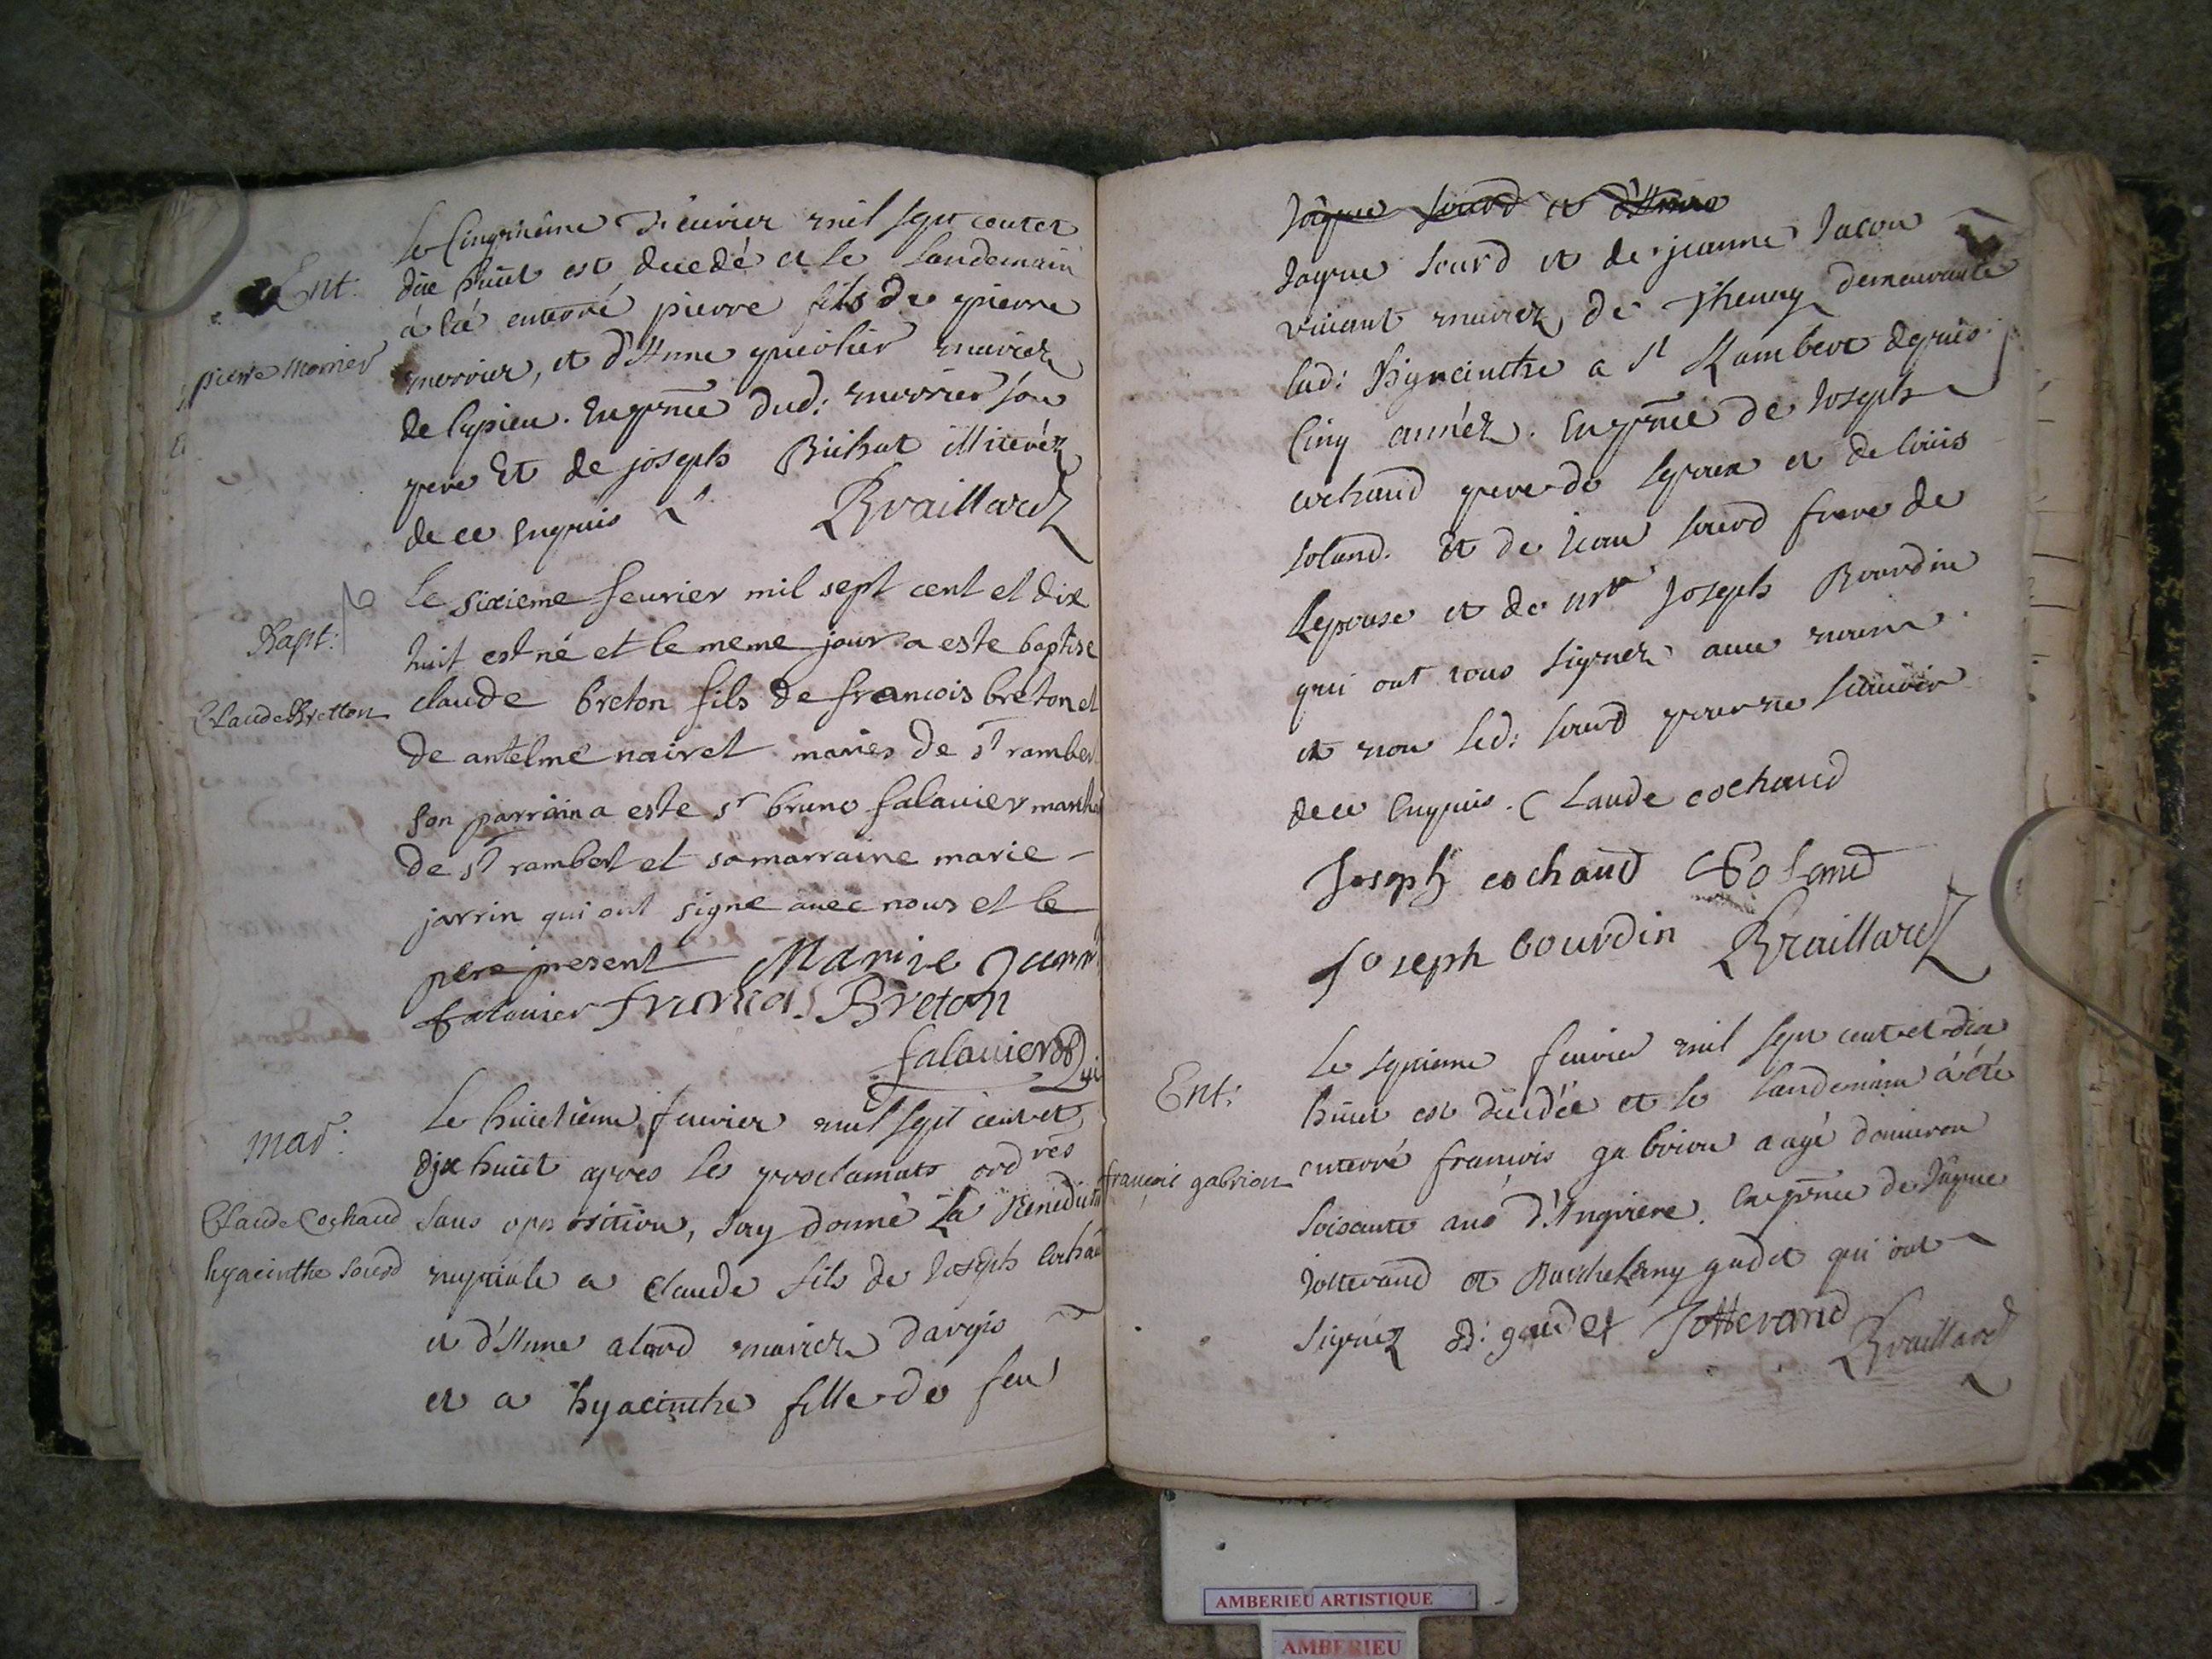 Ent.
pierre morrier
Le Cinquieme Feuvrier mil sept cent et
dix huit est decedé et le landemain
a été enterré pierre fils de pierre
morrier, et d'Anne queolier mariez
de lupieu. En pñce dud: morrier son
pere Et de joseph Bichat illiteréz
de ce Enquis Braillard
Bapt:
Claude Bretton
le sixieme feurier mil sept cent et dix
huit est né et le meme jour a este baptise
claude breton fils de francois breton et
de antelme nairet maries de st ramber
son parrain a este sr bruno falauier marcha
de st rambert et sa marraine marie
jarrin qui ont signe auec nous et le
pere present Marie Jarin
falauier Francois Breton
falauier
mar:
Claude Cochaud
hyacinthe sourd
Le huictieme feuvrier mil sept cent et
dix huict apres les proclamats ordres
sans opposition, Jay donné La Benedictn
nuptiale a Claude fils de Joseph Cochau
et d'Anne alard mariez d'argis
et a hyacinthe fille de feu
Jaque sourd et d'Anne
Jaque sourd et de jeanne Jacou
viuant mariez de Thenay demeurante
lad: hyacinthe a St Rambert depuis
Cinq année. En pñce de Joseph
cochaud pere de lepoux et de louis
Roland. et de Jean sourd frere de
Lepouse et de mre Joseph Bourdin
qui ont tous signez auec nous
et non led: sourd pour ne scauoir
de ce Enquis. Claude cochaud
Joseph cochaud Roland
Joseph bourdin Braillard
Ent:
françois gabrion
Le septieme feuvrier mil sept cent et dix
huict est decedée et le landemain a été
enterré francois gabrion aagé d'enuiron
soisante ans d'Angriere. En pñce de Jaque
Jotterand et Barthelemy gudet qui ont
signéz B: gudet Jotterand Braillard
AMBERIEU ARTISTIQUE
AMBERIEU